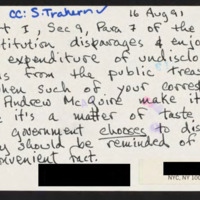 CC: S. Trahern 16 Aug 91
t I, Sec 9, Para 7 of the
titution disparages & enjo
expenditure of undisclo
s from the public treas
hen such of your corres
Andrew McGuire make it
e it's a matter of taste
government chooses to dis
y should be reminded of
onvenient fact.
NYC, NY 100